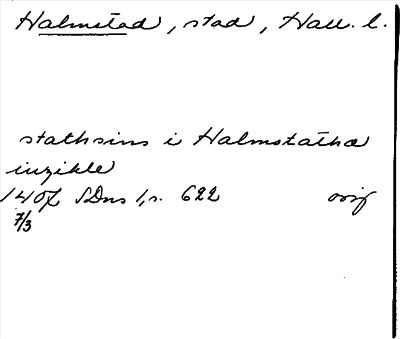 Halmstad, stad, Hall. l.
stathsins i Halmstatha
inzikle
1407 SDns 1, s. 622 orig
7/3